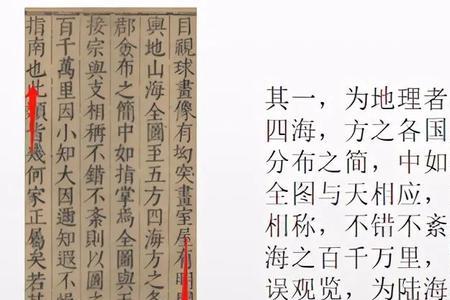 目視球畫像有坳突畫室屋有明
輿地山海全圖至五方四海方之各
郡僉布之簡中如指掌焉全圖與天
接宗與支相稱不錯不紊則以圖
百千萬里因小知大因邇知遐不
指南也此類皆幾何家正屬矣若其
其一，为地理者
四海，方之各国
分布之简，中如
全图与天相应，
相称，不错不紊
海之百千万里，
误观览，为陆海